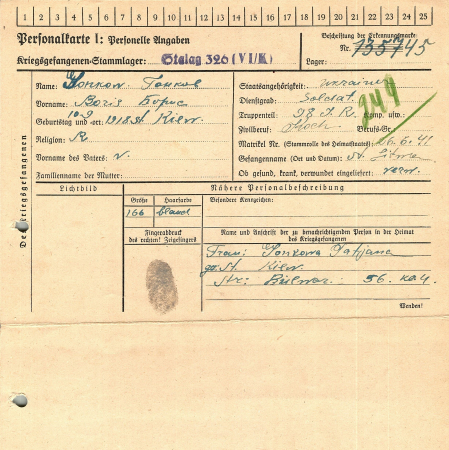 1 2 3 4 5 6 7 8 9 10 11 12 13 14 15 16 17 18 19 20 21 22 23 24 25
Personalkarte I: Personelle Angaben
Kriegsgefangenen-Stammlager: Stalag 326 (VI/K)
Beschriftung der Erkennungsmarke
Nr.
Lager:
Des Kriegsgefangenen
Name:
Vorname: Boris Борис
Geburtstag und -ort: 1918 St. Kiew
Religion: R
Vorname des Vaters:
Familienname der Mutter:
Staatsangehörigkeit: Ukrainer
Dienstgrad: Soldat
Truppenteil: 98 I.R. Komp. usw.:
Zivilberuf: Koch Berufs-Gr.:
Matrikel Nr. (Stammrolle des Heimatstaates):
Gefangennahme (Ort und Datum): 41
Ob gesund, krank, verwundet eingeliefert: verw.
244
Lichtbild
Nähere Personalbeschreibung
Größe Haarfarbe
166 bland
Besondere Kennzeichen:
Fingerabdruck
des rechten! Zeigefingers
Name und Anschrift der zu benachrichtigenden Person in der Heimat
des Kriegsgefangenen
Frau: Tatjana
St. Kiew
Str: 56.
Wenden!